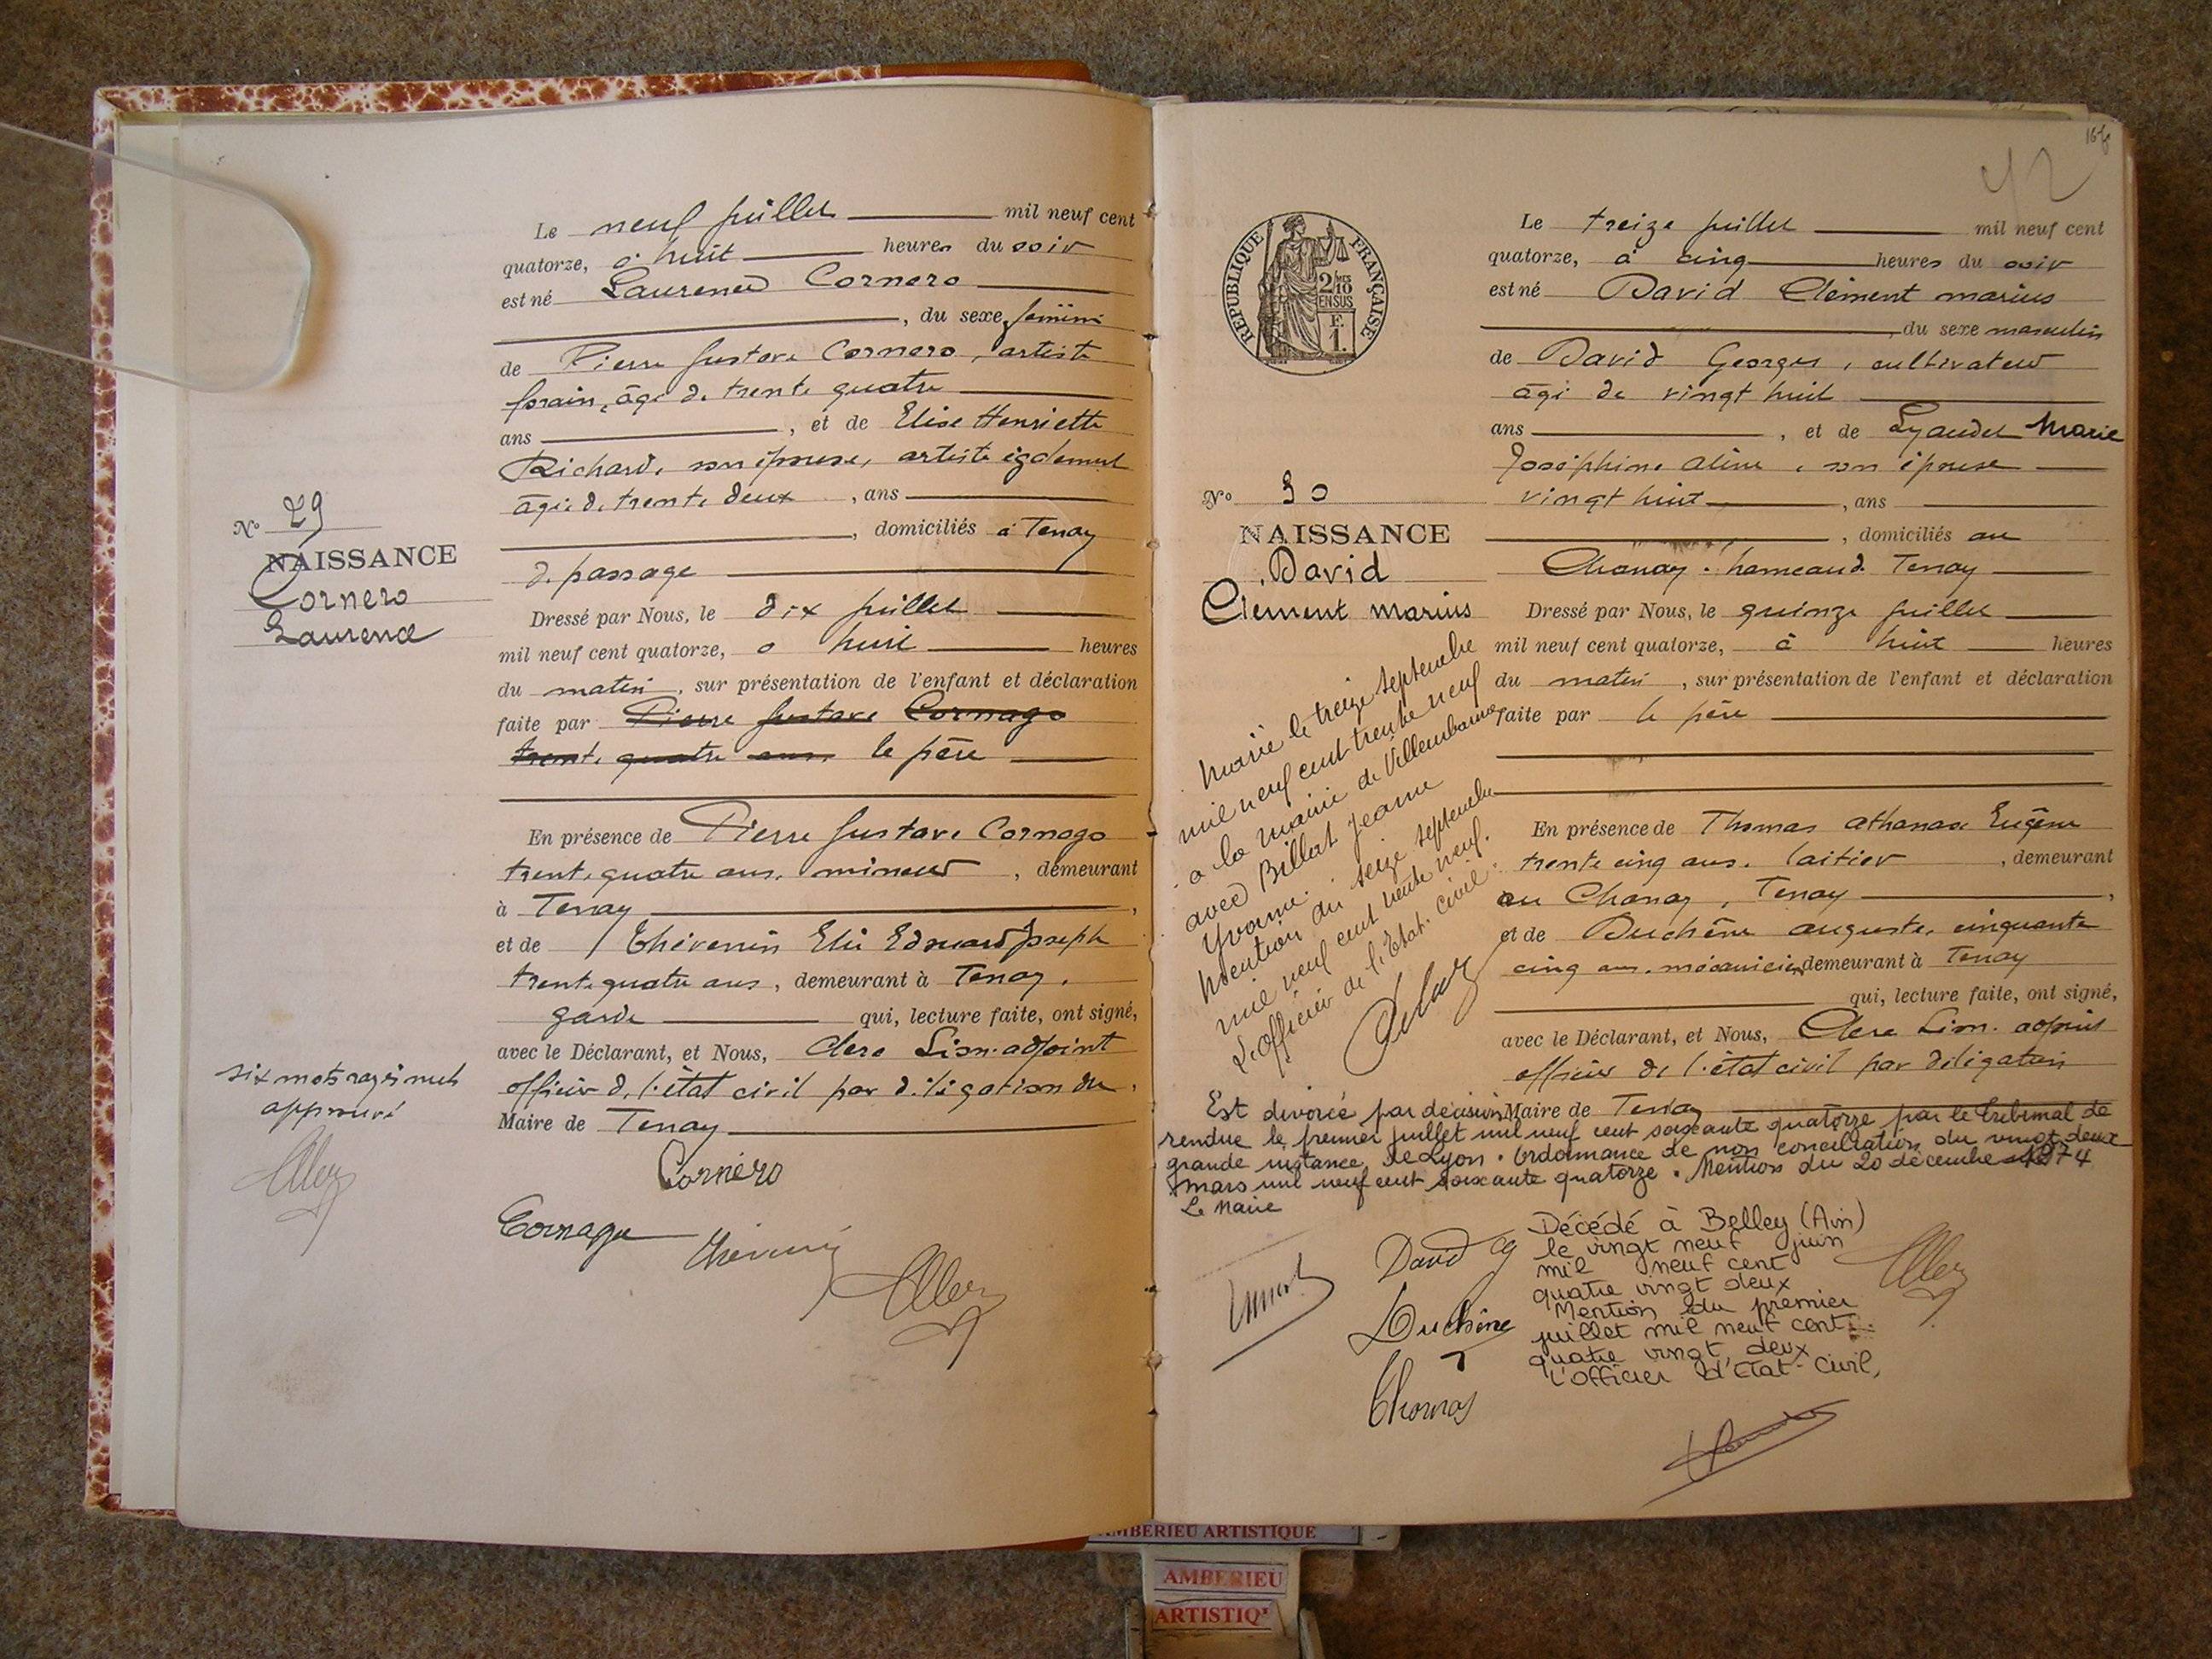 Le neuf juillet mil neuf cent
quatorze, à huit heures du soir
est né Laurence Cornero
, du sexe féminin
de Pierre Gustave Cornero, artiste
forain, âgé de trente quatre
ans , et de Elise Henriette
Richard, son épouse, artiste également
âgée de trente deux , ans
, domiciliés à Tenay
de passage
Dressé par Nous, le dix juillet
mil neuf cent quatorze, à huit heures
du matin, sur présentation de l'enfant et déclaration
faite par Pierre Gustave Cornago
trente quatre ans, le père
En présence de Pierre Gustave Cornago
trente quatre ans, mineur , demeurant
à Tenay ,
et de Thévenin Elie Edouard Joseph
trente quatre ans, demeurant à Tenay,
garde qui, lecture faite, ont signé,
avec le Déclarant, et Nous, Clerc Lion adjoint
officier de l'état civil par délégation du
Maire de Tenay
No 29
NAISSANCE
Cornero
Laurence
six mots rayés nuls
approuvé
Cornéro
Cornago
Thévenin
168
42
RÉPUBLIQUE FRANÇAISE
2/10
EN SUS
F.
1.
Le treize juillet mil neuf cent
quatorze, à cinq heures du soir
est né David Clément Marius
, du sexe masculin
de David Georges, cultivateur
âgé de vingt huit
ans , et de Lyaudet Marie
Joséphine Aline, son épouse
vingt huit , ans
, domiciliés au
Chanay, hameau de Tenay
Dressé par Nous, le quinze juillet
mil neuf cent quatorze, à huit heures
du matin, sur présentation de l'enfant et déclaration
faite par le père
En présence de Thomas Athanase Eugène
trente cinq ans, laitier , demeurant
au Chanay, Tenay ,
et de Duchêne Auguste, cinquante
cinq ans, mécanicien, demeurant à Tenay
qui, lecture faite, ont signé,
avec le Déclarant, et Nous, Clerc Lion, adjoint
officier de l'état civil par délégation
Maire de Tenay
No 30
NAISSANCE
David
Clément Marius
Marié le treize septembre
mil neuf cent trente neuf
à la mairie de Villeurbanne
avec Billat Jeanne
Yvonne
Mention du seize septembre
mil neuf cent trente neuf.
L'officier de l'Etat civil.
Est divorcé par décision
rendue le premier juillet mil neuf cent soixante quatorze par le tribunal de
grande instance de Lyon. Ordonnance de non conciliation du vingt deux
mars mil neuf cent soixante quatorze. Mention du 20 décembre 1974
Le Maire
David
Duchêne
Thomas
Décédé à Belley (Ain)
le vingt neuf juin
mil neuf cent
quatre vingt deux
Mention du premier
juillet mil neuf cent
quatre vingt deux
L'officier d'Etat-Civil,
AMBERIEU ARTISTIQUE
AMBERIEU
ARTISTIQ